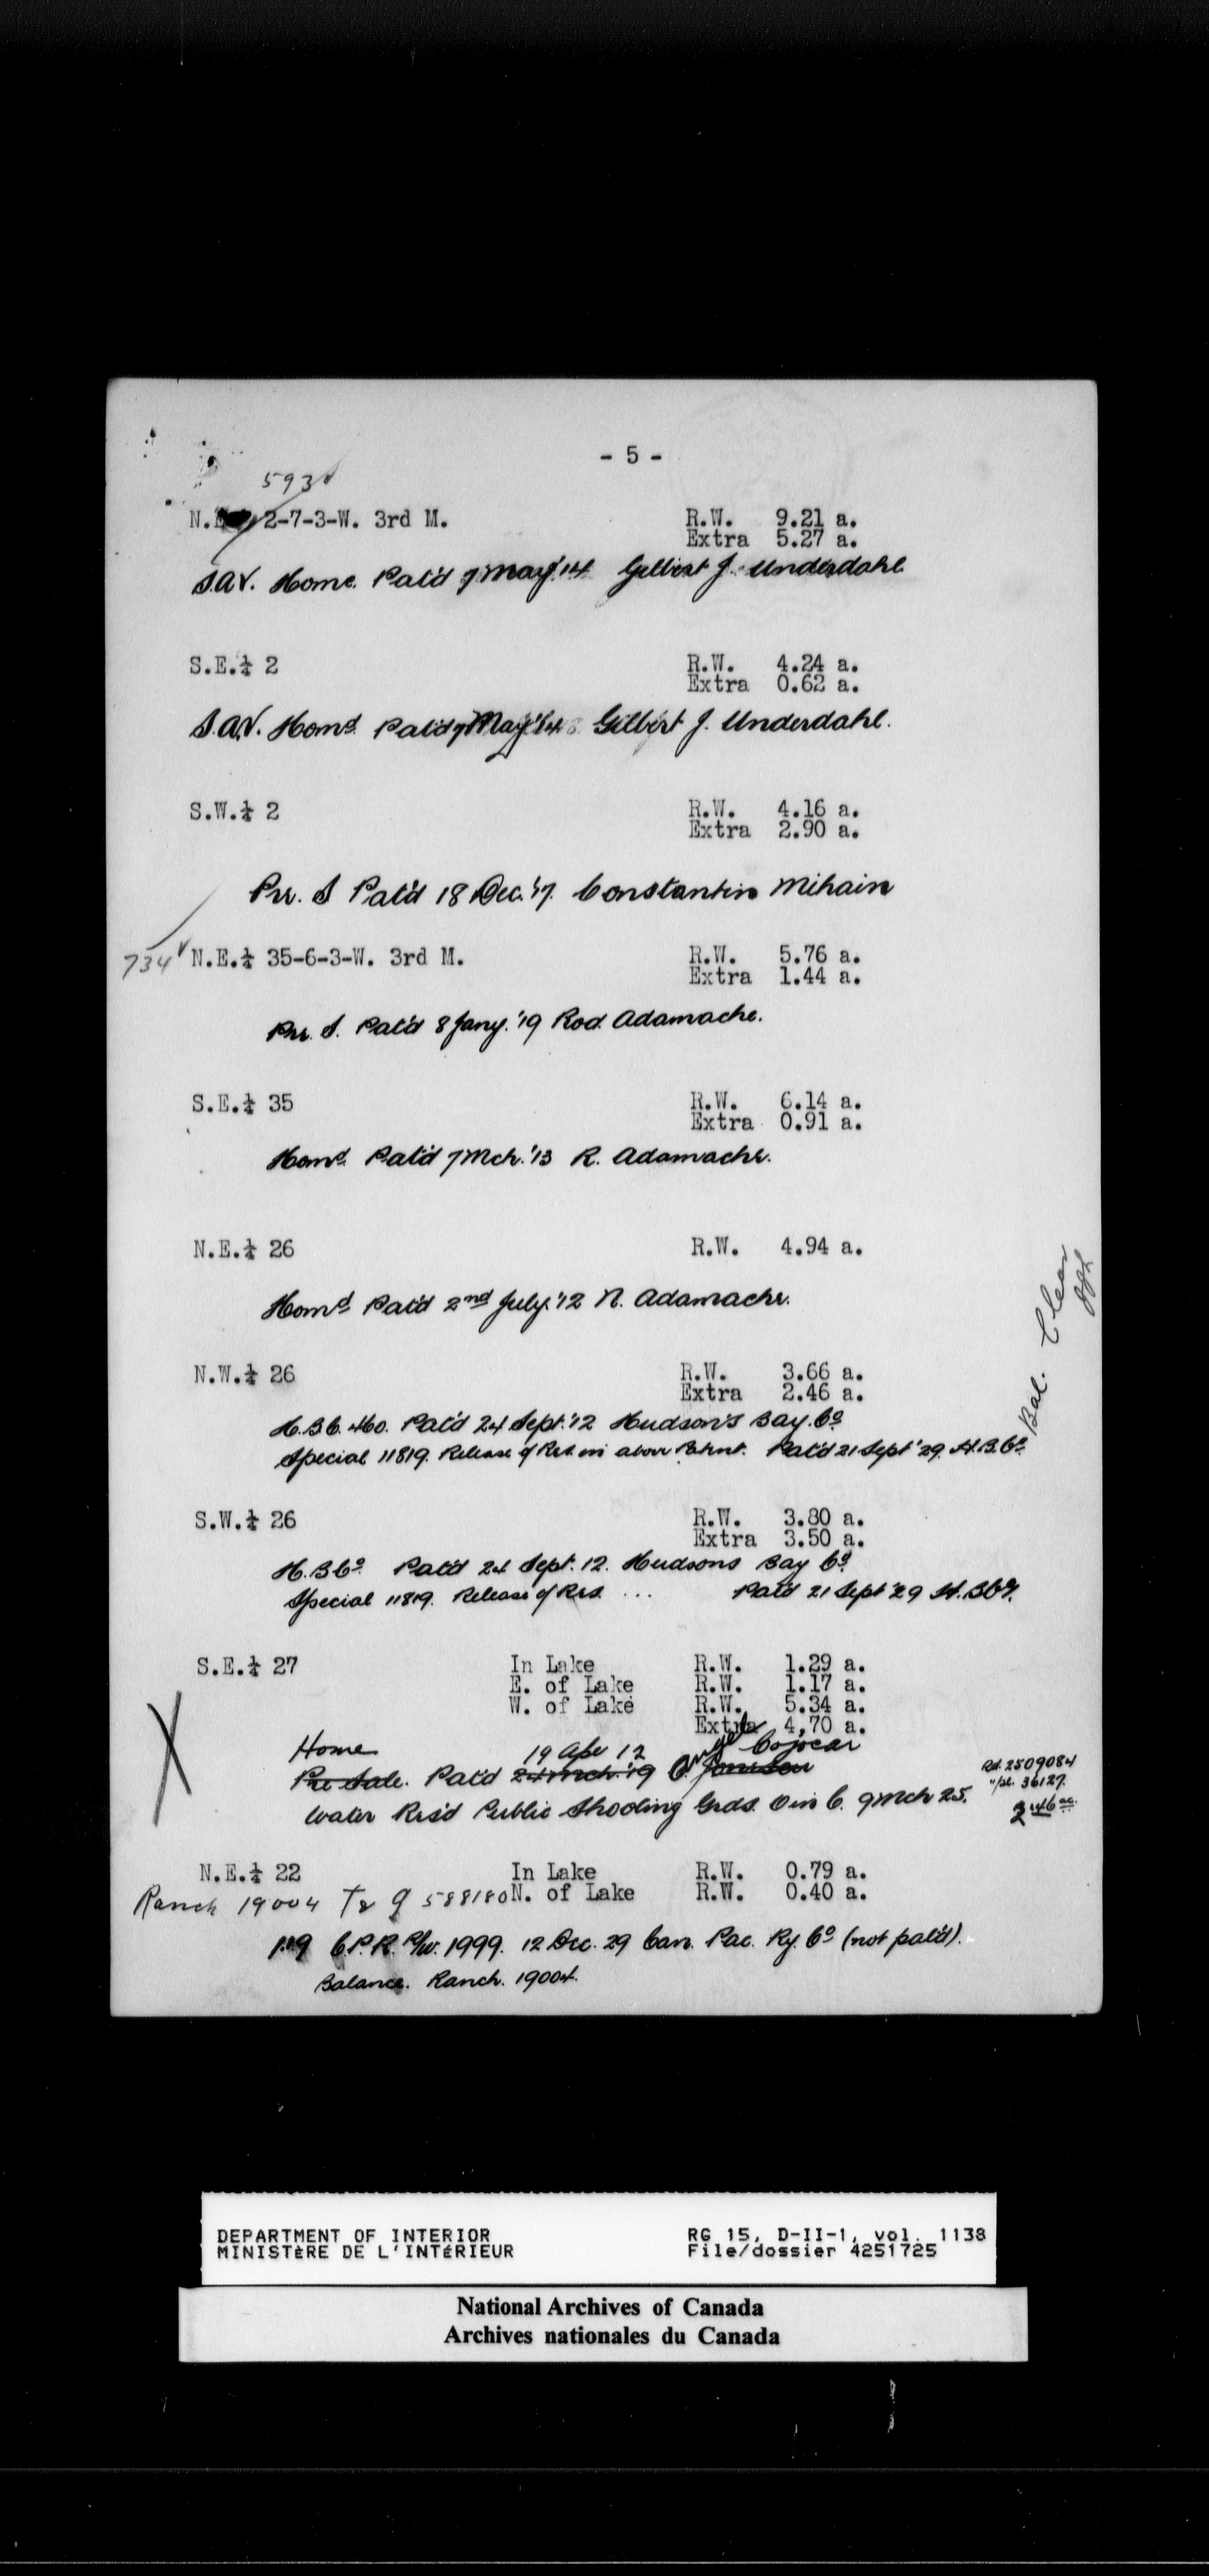 - 5 -
593
N.E. 2-7-3-W. 3rd M. R.W. 9.21 a.
Extra 5.27 a.
S.A.V. Home. Pat'd 7 May '14 Gilbert J. Underdahl.
S.E.¼ 2 R.W. 4.24 a.
Extra 0.62 a.
S.A.V. Homd. Pat'd 7 May '14 Gilbert J. Underdahl.
S.W.¼ 2 R.W. 4.16 a.
Extra 2.90 a.
Pre. S Pat'd 18 Dec. '17. Constantin Mihain
734 N.E.¼ 35-6-3-W. 3rd M. R.W. 5.76 a.
Extra 1.44 a.
Pre. S. Pat'd 8 Jany. '19 Rod. Adamache.
S.E.¼ 35 R.W. 6.14 a.
Extra 0.91 a.
Homd. Pat'd 7 Mch. '13 R. Adamache.
N.E.¼ 26 R.W. 4.94 a.
Homd Pat'd 2nd July '12 N. Adamache.
Bal. Clear
N.W.¼ 26 R.W. 3.66 a.
Extra 2.46 a.
H.B.C. 460. Pat'd 24 Sept. '12 Hudson's Bay. Co.
Special 11819. Release of Res. in above Patent. Pat'd 21 Sept '29. H.B.Co.
S.W.¼ 26 R.W. 3.80 a.
Extra 3.50 a.
H.B.Co. Pat'd 24 Sept. 12. Hudsons Bay Co.
Special 11819. Release of Res. ... Pat'd 21 Sept '29 H.B.Co.
S.E.¼ 27 In Lake R.W. 1.29 a.
E. of Lake R.W. 1.17 a.
W. of Lake R.W. 5.34 a.
Extra 4.70 a.
Home 19 Apr 12 Cojocar
Pre Sale. Pat'd 24 Mch. '19
Water Res'd Public Shooting Grds. O in C. 9 Mch 25.
Rd. 2509084
36127.
2.46 ac.
N.E.¼ 22 In Lake R.W. 0.79 a.
Ranch 19004 588180 N. of Lake R.W. 0.40 a.
1.19 C.P.R. R/W. 1999. 12 Dec. 29 Can. Pac. Ry. Co (not pat'd).
Balance. Ranch. 19004.
DEPARTMENT OF INTERIOR RG 15, D-II-1, vol. 1138
MINISTÈRE DE L'INTÉRIEUR File/dossier 4251725
National Archives of Canada
Archives nationales du Canada